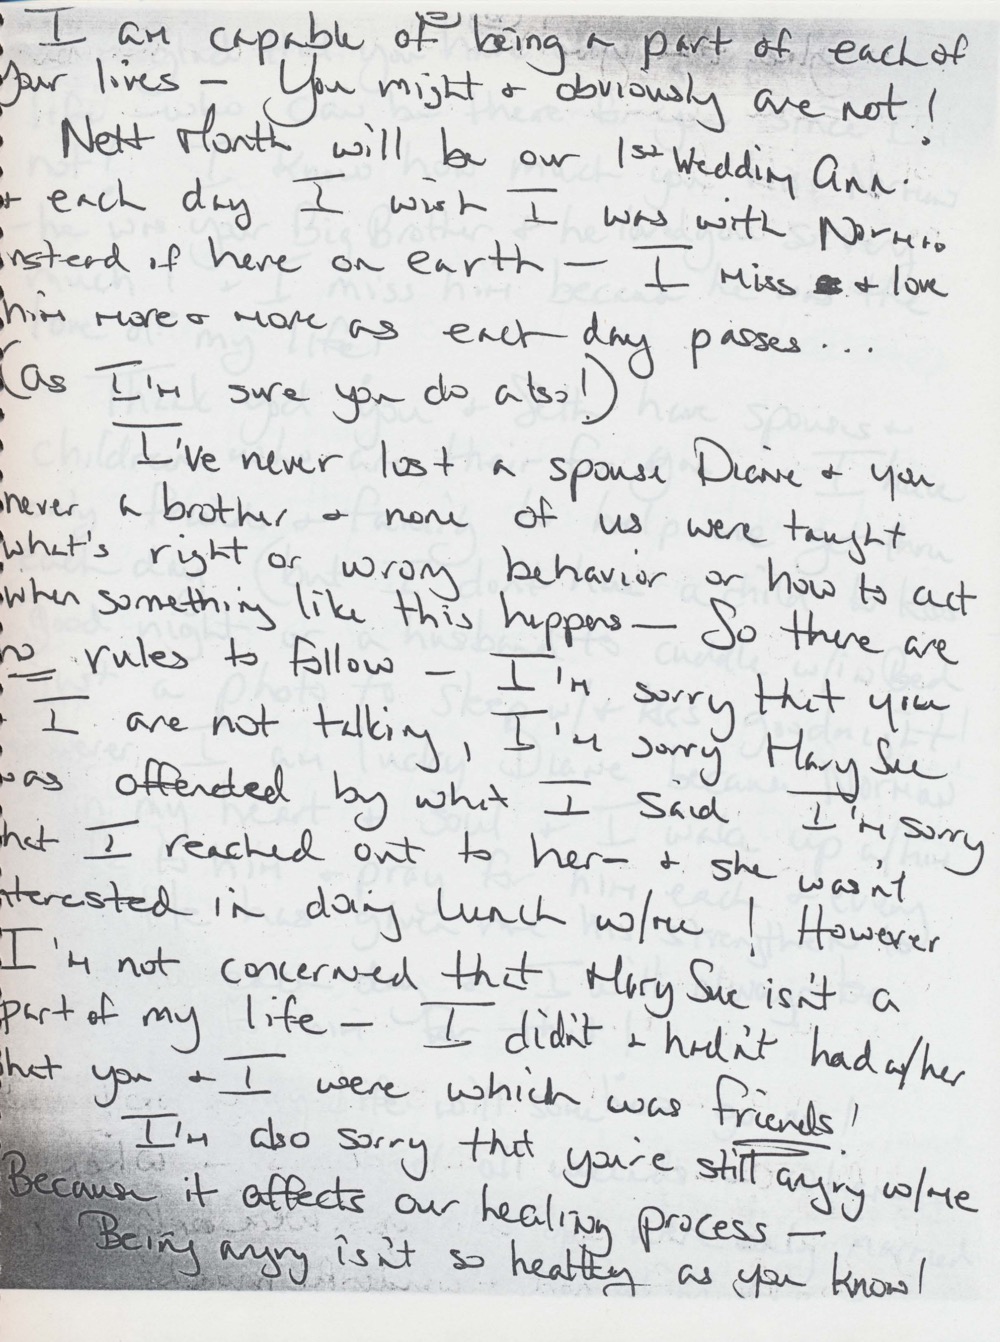 I am capable of being a part of each of
your lives – You might & obviously are not!
Next Month will be our 1st Wedding Ann.
+ each day I wish I was with Norman
instead of here on earth – I miss & love
him more & more as each day passes...
(as I'm sure you do also!)
I've never lost a spouse Diane & you
never a brother & none of us were taught
what's right or wrong behavior or how to act
when something like this happens – So there are
no rules to follow – I'm sorry that you
+ I are not talking, I'm sorry Mary Sue
was offended by what I said I'm sorry
that I reached out to her – & she wasn't
interested in doing lunch w/me! However
I'm not concerned that Mary Sue isn't a
part of my life – I didn't & hadn't had w/her
that you & I were which was friends!
I'm also sorry that you're still angry w/me
Because it affects our healing process –
Being angry isn't so healthy as you know!